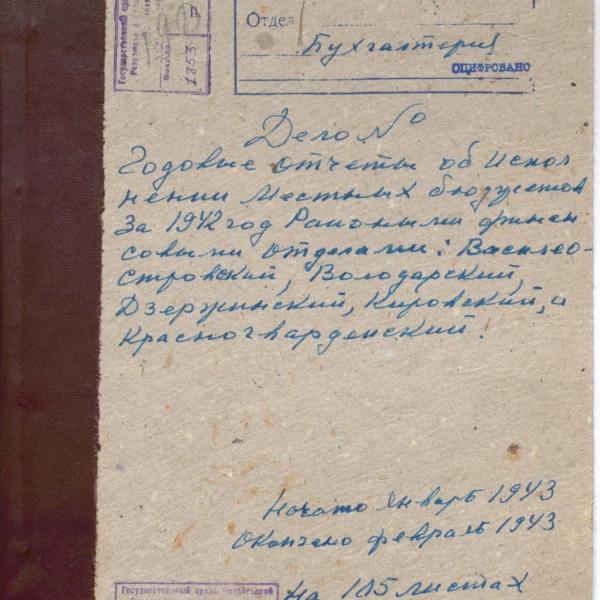 Государственный арх
1853
Отдел
Бухгалтерия
ОЦИФРОВАНО
Дело №
Годовые отчеты об испол
нении местных бюджетов
за 1942 год Райоными финан
совыми отделами: Василео-
стровский, Володарский,
Дзержинский, Кировский, и
Красногвардейский.
Начато январь 1943
Окончено февраль 1943
На 105 листах
Государственный архив Октябрьской